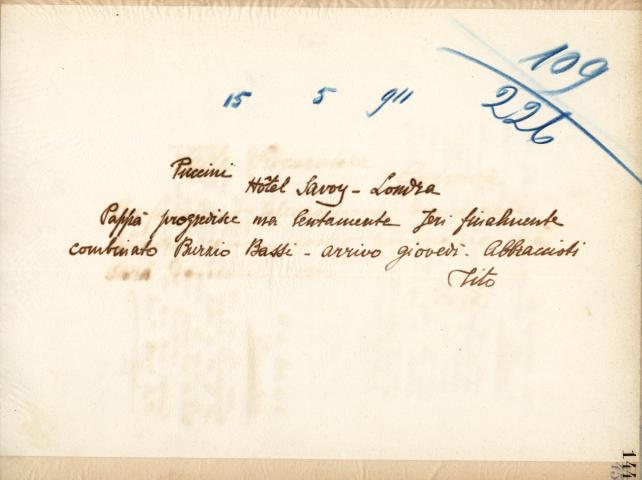 109
226
15 5 911
Puccini
Hôtel Savoy - Londra
Pappà progredisce ma lentamente Jeri finalmente
combinato Burzio Bassi - arrivo giovedì. Abbraccioti
Tito
144